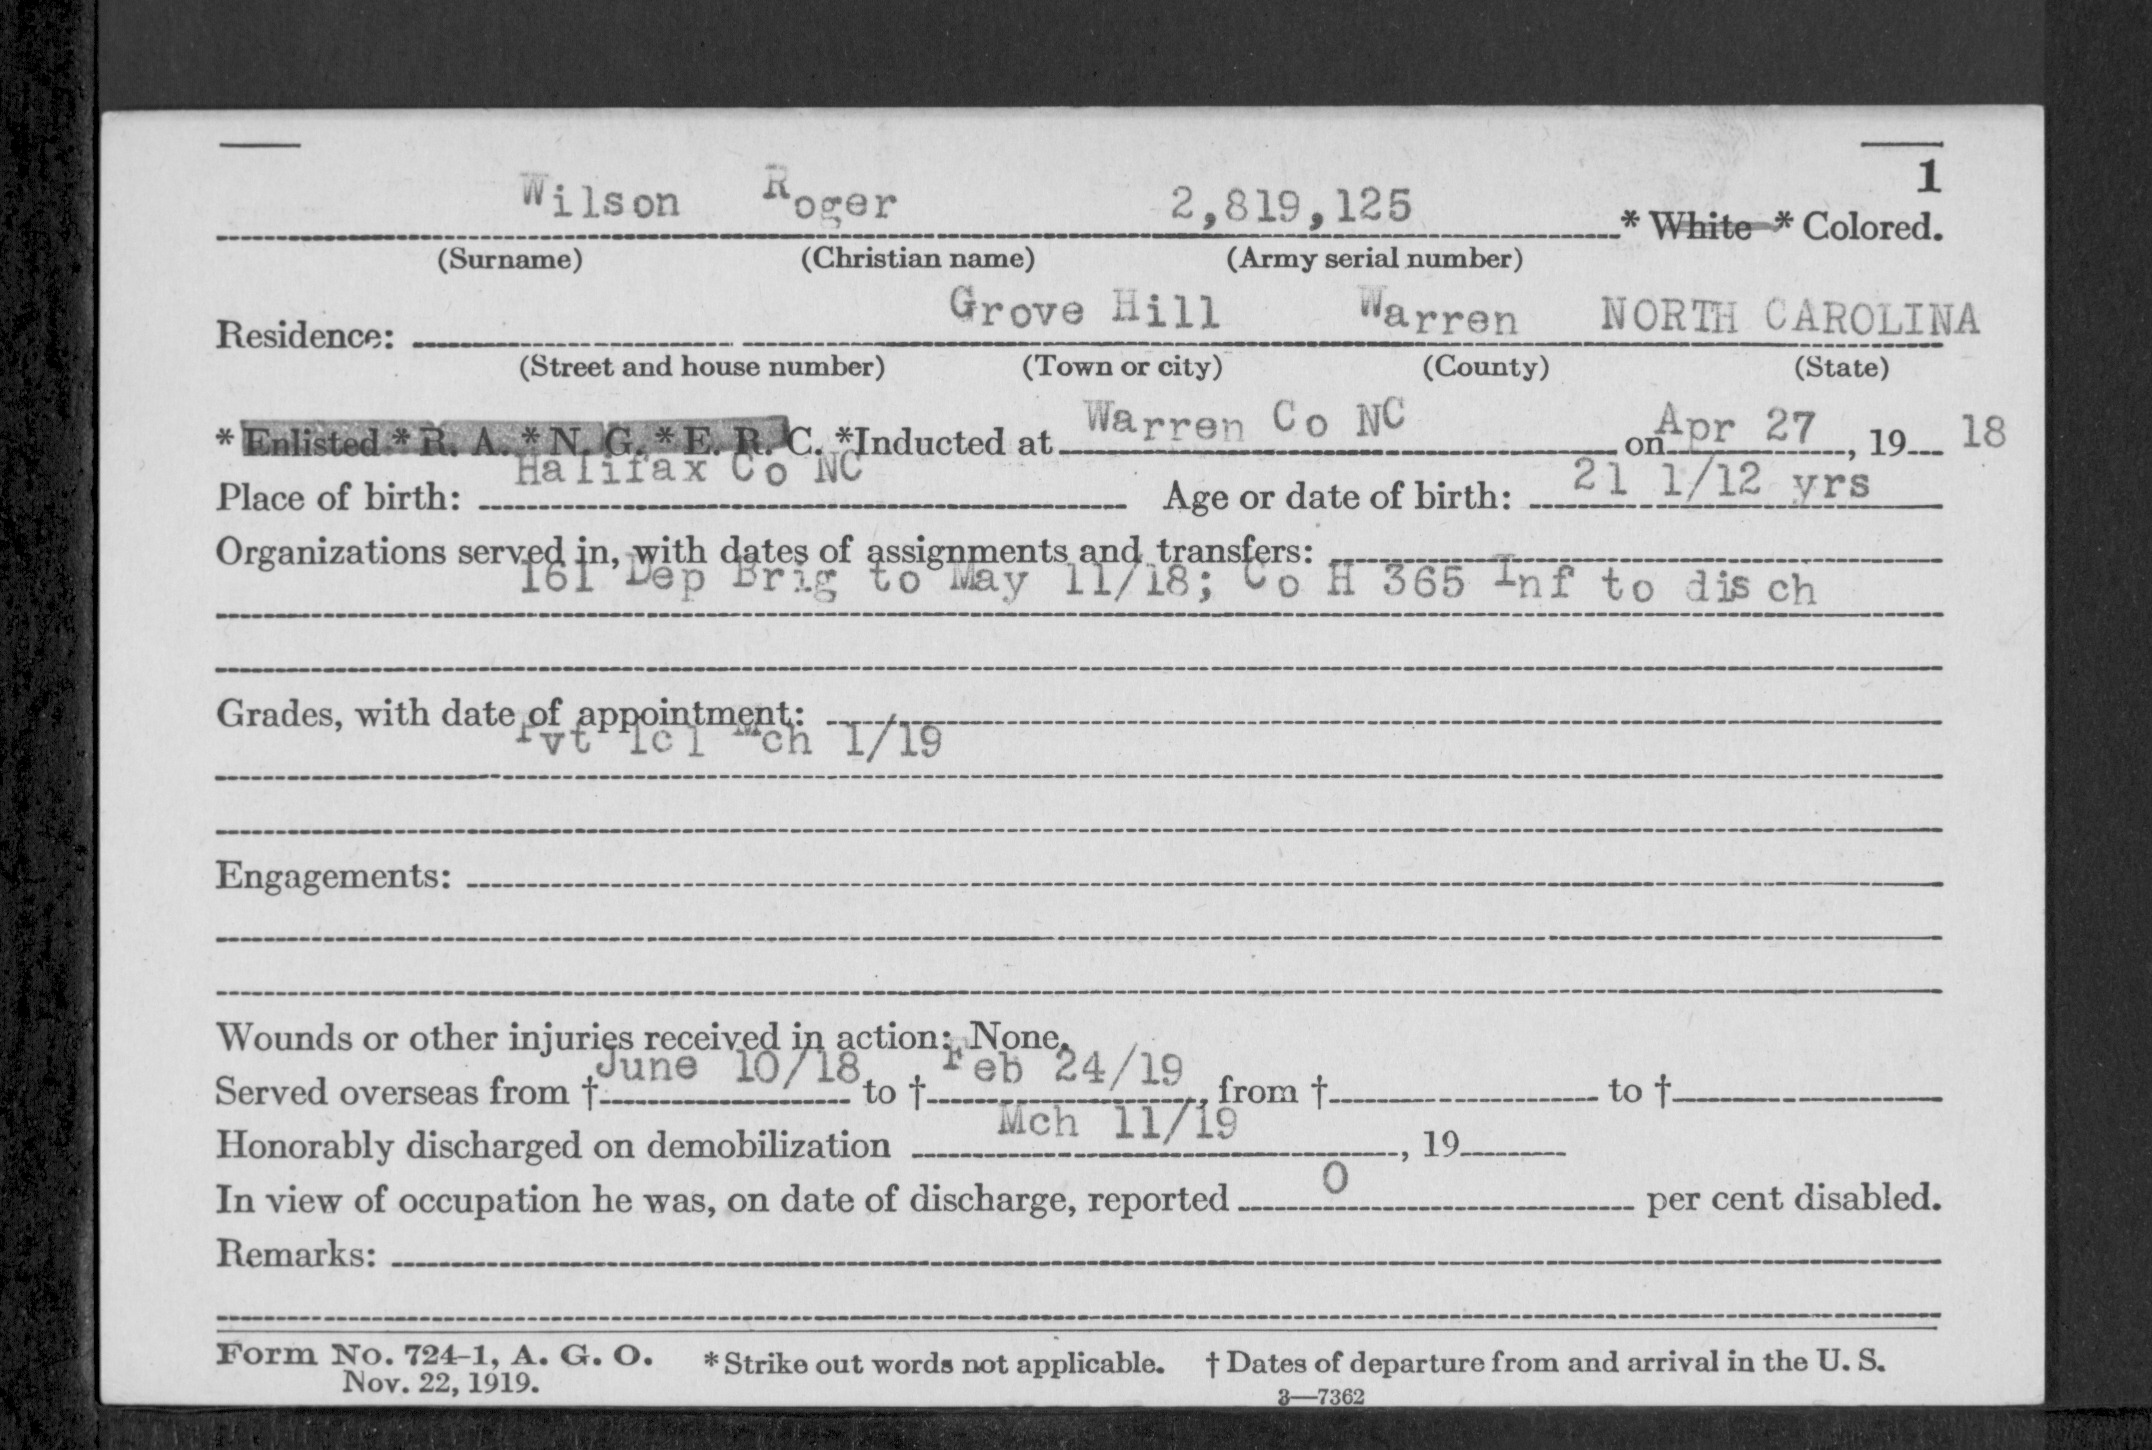 1
Wilson Roger 2,819,125 * White * Colored.
(Surname) (Christian name) (Army serial number)
Residence: Grove Hill Warren NORTH CAROLINA
(Street and house number) (Town or city) (County) (State)
* Enlisted * R. A. * N. G. * E. R. C. *Inducted at Warren Co NC on Apr 27, 19 18
Place of birth: Halifax Co NC Age or date of birth: 21 1/12 yrs
Organizations served in, with dates of assignments and transfers:
161 Dep Brig to May 11/18; Co H 365 Inf to disch
Grades, with date of appointment:
Pvt 1cl Mch 1/19
Engagements:
Wounds or other injuries received in action: None.
Served overseas from † June 10/18 to † Feb 24/19, from † to †
Honorably discharged on demobilization Mch 11/19, 19
In view of occupation he was, on date of discharge, reported 0 per cent disabled.
Remarks:
Form No. 724-1, A. G. O. * Strike out words not applicable. † Dates of departure from and arrival in the U. S.
Nov. 22, 1919.
3—7362